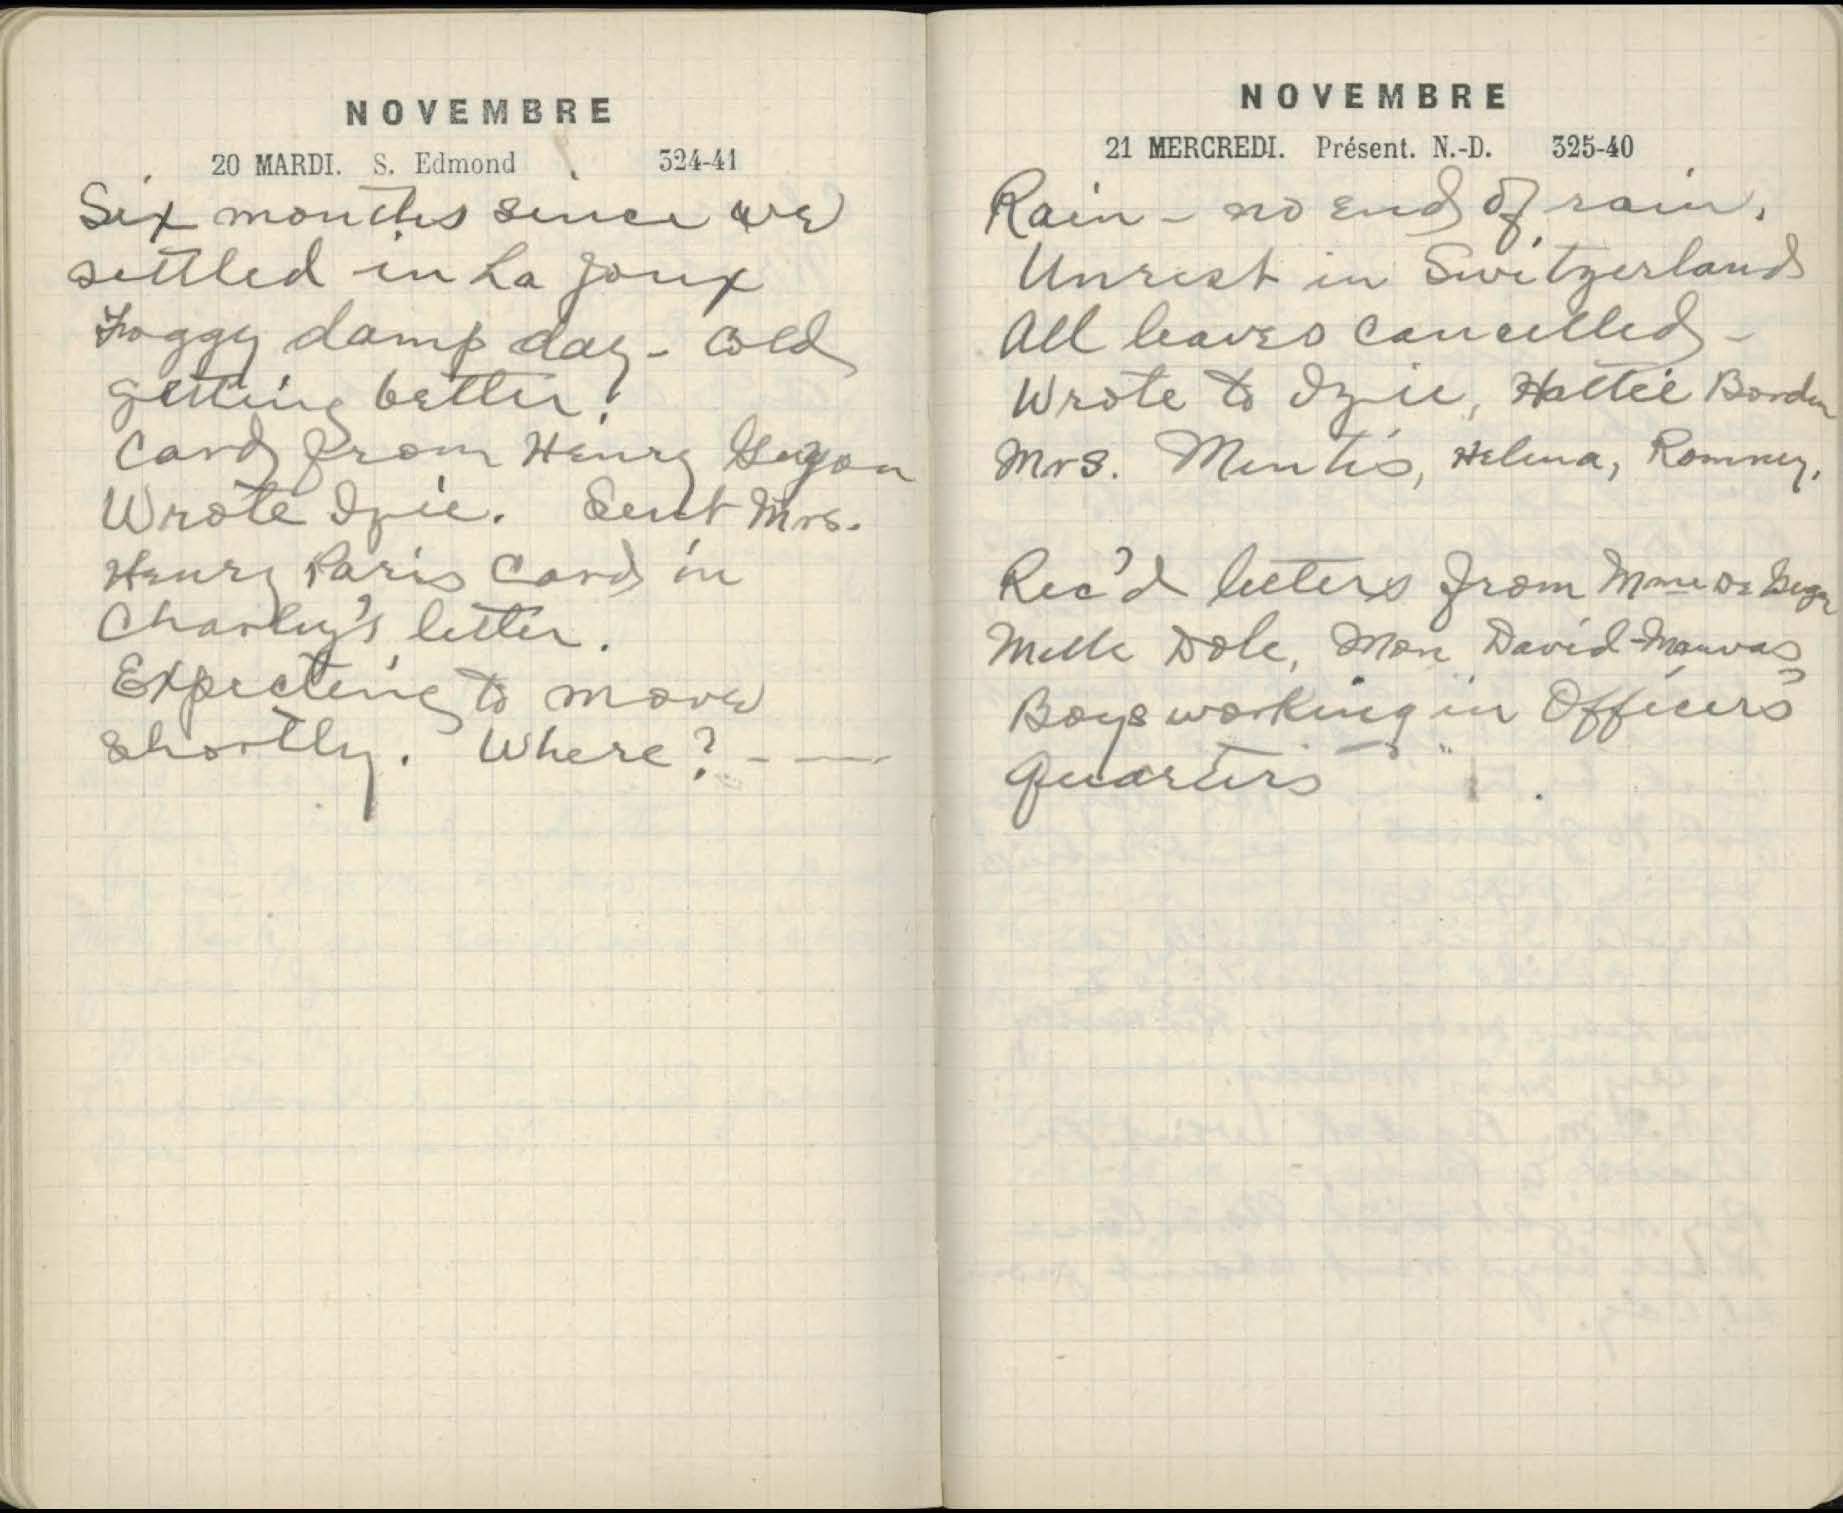 NOVEMBRE
20 MARDI. S. Edmond 324-41
Six months since we
settled in La Joux
Foggy damp day - cold
getting better!
Card from Henry
Wrote Izie. Sent Mrs.
Henry Paris Card in
Charley's letter.
Expecting to move
shortly. Where? - —
NOVEMBRE
21 MERCREDI. Présent. N.-D. 325-40
Rain - no end of rain.
Unrest in Switzerland
All leaves cancelled -
Wrote to Izie, Hattie Borden
Mrs. Mentis, Helena, Romney.
Rec'd letters from Mme De
Melle Dole, David-Mauvas
Boys working in Officers'
Quarters